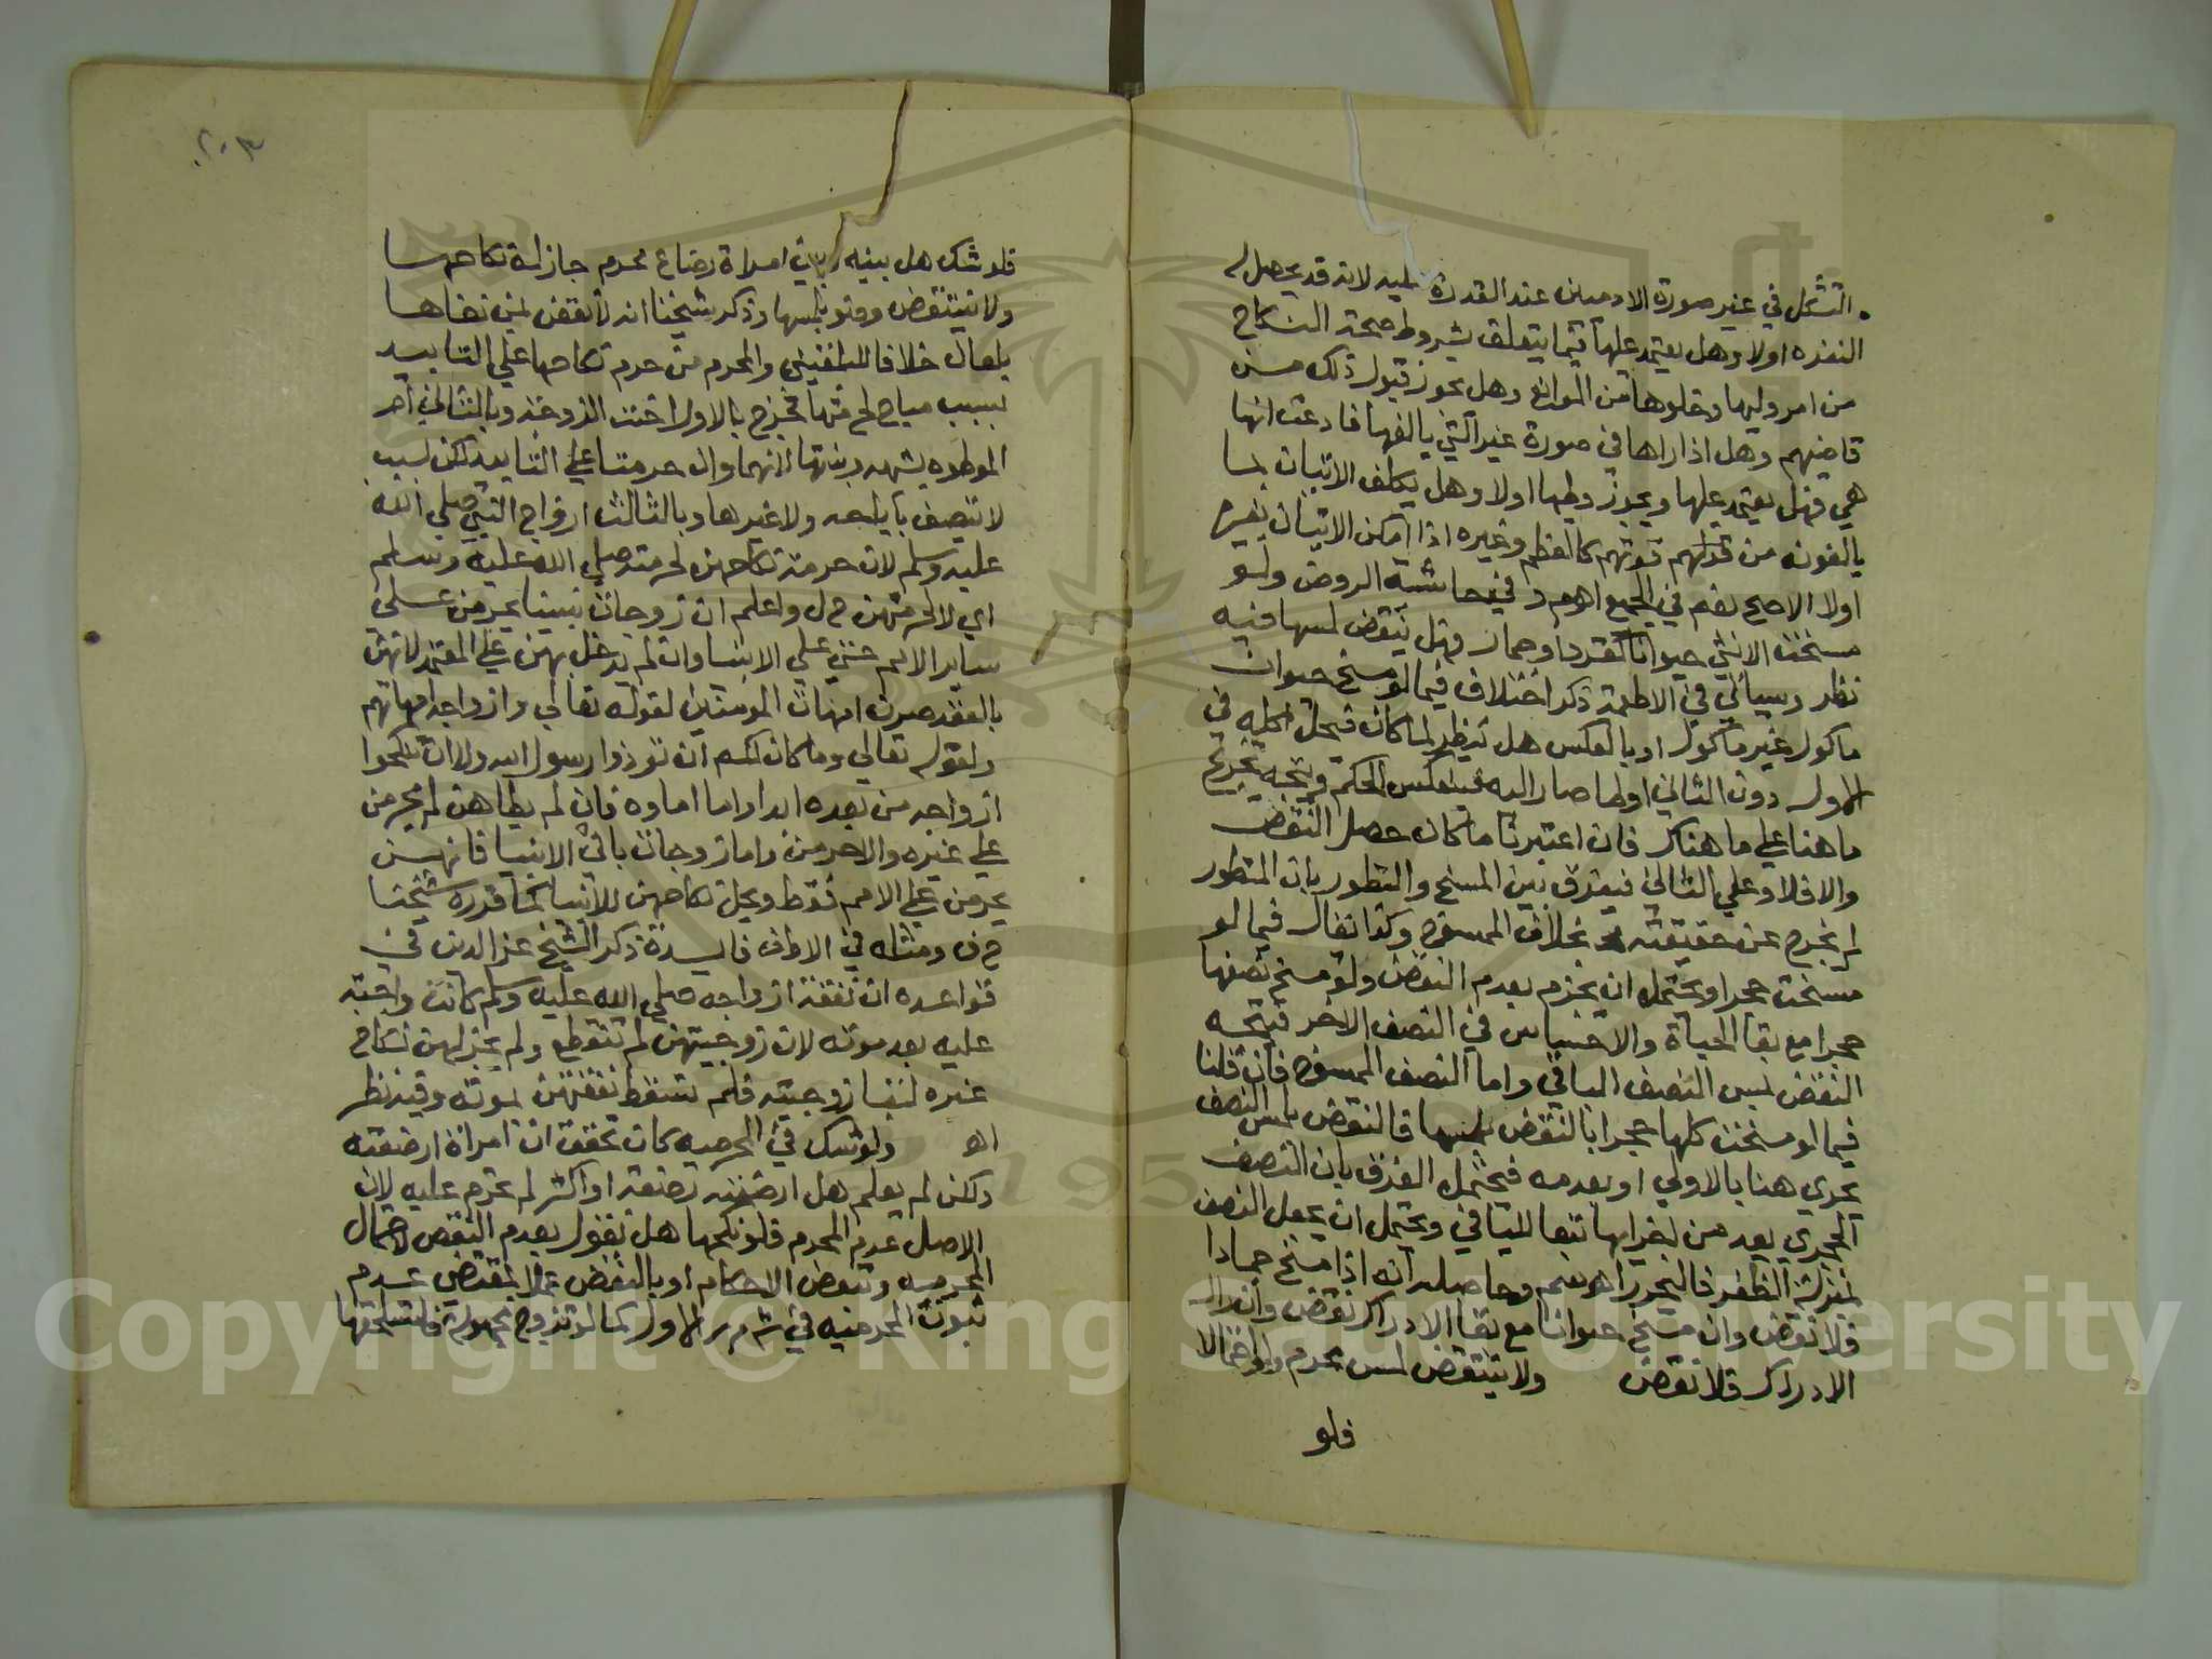 التشكل في غير صورة الادميين عند القدرة عليه لانه قد يحصل له
النفرة اولا وهل يعتمد عليها فيما يتعلق بشروط صحة النكاح
من امر وليها وخلوها من الموانع وهل يجوز قبول ذلك من
قاضيهم وهل اذا راها في صورة غير التي يالفها فادعت انها
هي فهل يعتمد عليها ويجوز وطيها اولا وهل يكلف الاتيان بما
يالفونه من قوتهم كالعظم وغيره اذا امكن الاتيان بغيره
اولا الاصح نعم في الجميع اهم ر في حاشية الروض ولو
مسخت الانثى حيوانا كقرد او حمار فهل ينقض لمسها فيه
نظر وسياتي في الاطعمة ذكر اختلاف فيما لو مسخ حيوان
ماكول غير ماكول او بالعكس هل ننظر لما كان فيحل اكله في
الاول دون الثاني او لما صار اليه فينعكس الحكم ويتجه تخريج
ما هنا على ما هناك فان اعتبرنا ما كان حصل النقض
والا فلا وعلى الثاني فيفرق بين المسخ والتطور بان المتطور
لم يخرج عن حقيقته بخلاف الممسوخ وكذا نقال فيما لو
مسخت حجرا ويحتمل ان يجزم بعدم النقض ولو مسخ نصفها
حجرا مع بقا الحياة والاحساس في النصف الاخر فيتجه
النقض لمس النصف الباقي واما النصف الممسوخ فان قلنا
فيما لو مسخت كلها حجرا بالنقض بلمسها فالنقض بلمس النصف
يجري هنا بالاولى او بعدمه فيحتمل الفرق بان النصف
الحجري يعد من اجزايها تبعا للباقي ويحتمل ان يجعل النصف
بمنزلة الظفر فاليحرر اهـ وحاصله انه اذا مسخ جمادا
فلا نقض وان مسخ حيوانا مع بقا الادراك نقض وان زال
الادراك فلا نقض ولا ينتقض لمس محرم
فلو
٢٠٣
فلو شك هل بينه وبين امراة رضاع محرم جاز له نكاحها
ولا ينتقض وضوه بلمسها وذكر شيخنا انه لا نقض لمن نفاها
بلعان خلافا للبلقيني والمحرم من حرم نكاحها على التابيد
بسبب مباح لحرمتها فخرج بالاول اخت الزوجة وبالثاني ام
الموطوه بشبهه وبنتها لانهما وان حرمتا على التابيد لكن بسبب
لا يتصف باباحه ولا غيرها وبالثالث ازواج النبي صلى الله
عليه وسلم لان حرمة نكاحهن لحرمته صلى الله عليه وسلم
اي لا لحرمتهن م ل واعلم ان زوجات نبينا يحرمن على
ساير الامم حتى على الانبيا وان لم يدخل بهن على المعتمد لانهن
بالعقد صرن امهات المومنين لقوله تعالى وازواجه امهاتهم
ولقوله تعالى وما كان لكم ان توذوا رسول الله ولا ان تنكحوا
ازواجه من بعده ابدا واما اماوه فان لم يطاهن لم يحرمن
على غيره والا حرمن واما زوجات باقي الانبيا فانهن
يحرمن على الامم فقط ويحل نكاحهن للانبيا كما قرره شيخنا
ح ف ومثله في الاطف فايدة ذكر الشيخ عز الدين في
قواعده ان نفقة ازواجه صلى الله عليه وسلم كانت واجبة
عليه بعد موته لان زوجيتهن لم تنقطع ولم يجز لهن نكاح
غيره لبقا زوجيته فلم تسقط نفقتهن بموته وفيه نظر
اهـ ولو شك في المحرميه كان تحقق ان امراة ارضعته
ولكن لم يعلم هل ارضعته رضعة او اكثر لم تحرم عليه لان
الاصل عدم المحرم فلو نكحها هل نقول بعدم النقض لاحتمال
المحرميه وتتبعض الاحكام او بالنقض عملا بمقتضى عدم
ثبوت المحرميه في ش م ر الاول كما لو تزوج مجهولة فاستلحقها
Copyright © King Saud University
1957